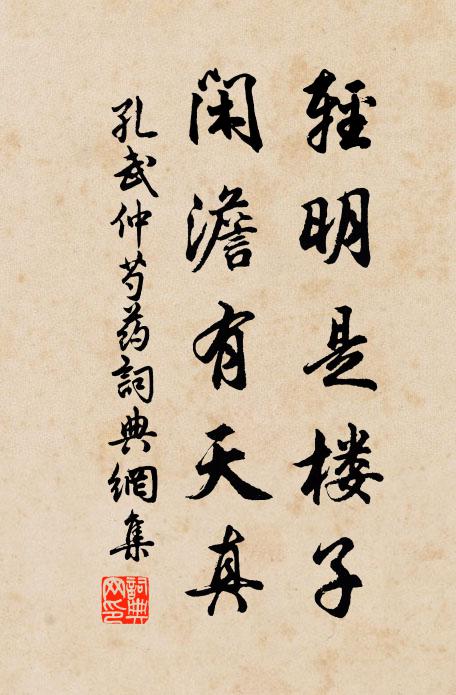 轻明是楼子
闲澹有天真
孔武仲芍药詞典網集
詞典网印